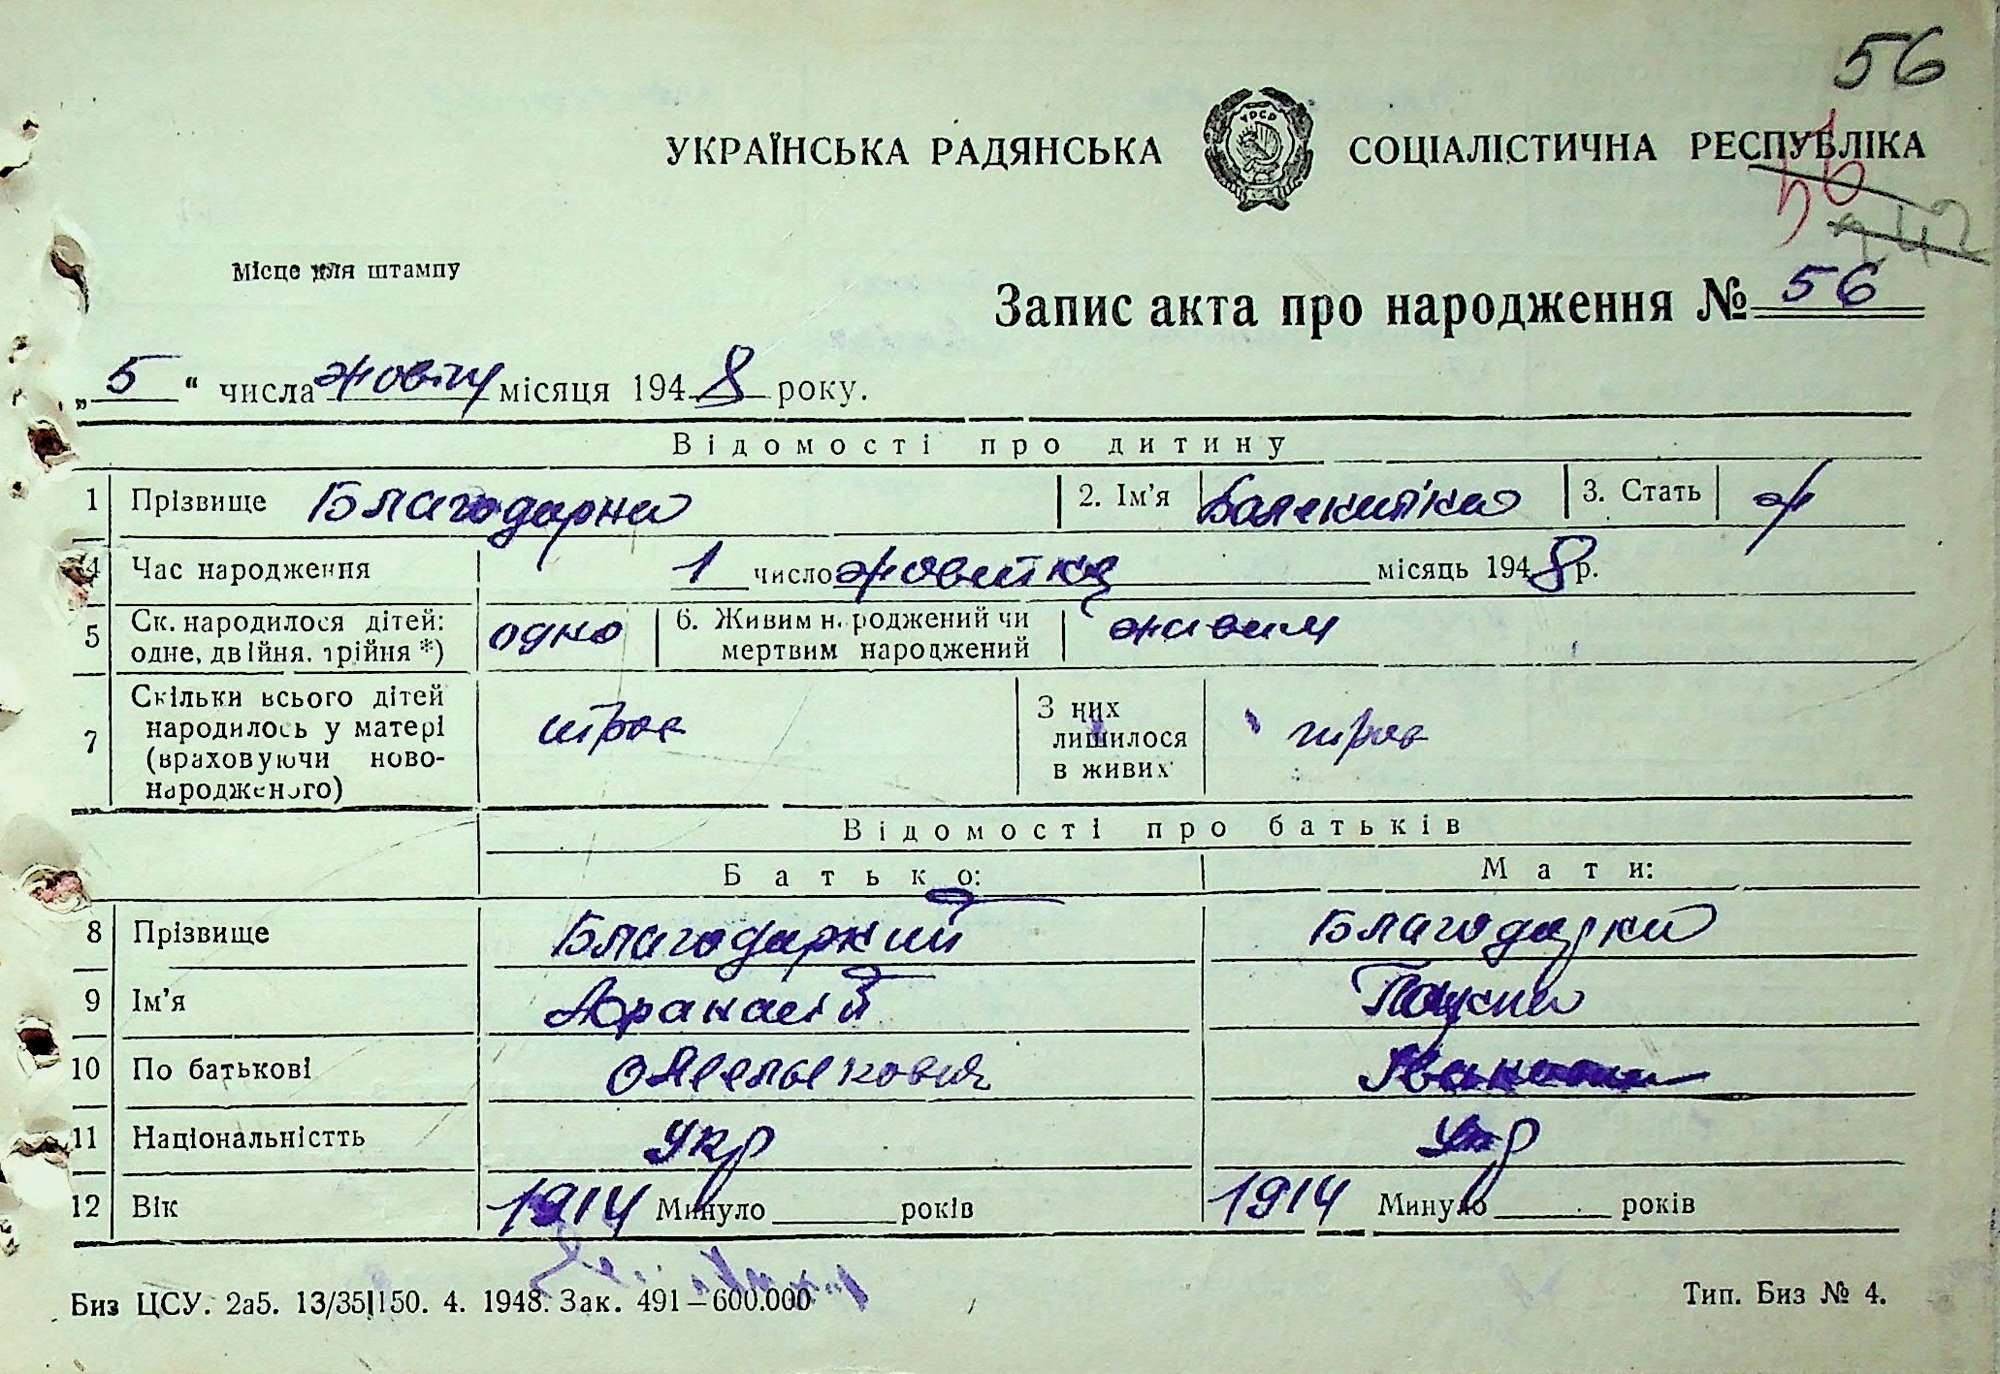 56
УКРАЇНСЬКА РАДЯНСЬКА СОЦІАЛІСТИЧНА РЕСПУБЛІКА
Місце для штампу
Запис акта про народження № 56
„5“ числа жовтн місяця 1948 року.
Відомості про дитину
1 Прізвище Благодарна 2. Ім’я Валентина 3. Стать ж
4 Час народження 1 число жовтня місяць 1948 р.
5 Ск. народилося дітей: одно 6. Живим народжений чи живим
одне, двійня, трійня *) мертвим народжений
7 Скільки всього дітей
народилось у матері троє З них троє
(враховуючи ново- лишилося
народженого) в живих
Відомості про батьків
Батько: Мати:
8 Прізвище Благодарний Благодарна
9 Ім’я Афанасій
10 По батькові Омелькович Івановна
11 Національністть Укр Укр
12 Вік 1914 Минуло років 1914 Минуло років
Биз ЦСУ. 2а5. 13/35 150. 4. 1948. Зак. 491—600.000 Тип. Биз № 4.